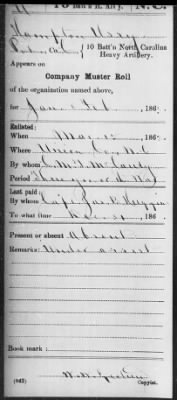 N.C.
10 Batt'n North Carolina
Heavy Artillery.
Appears on
Company Muster Roll
of the organization named above,
for Jan & Feb, 186
Enlisted:
When Mar 12, 186
Where Union Co., N.C.
By whom
Period Three yrs. or War
Last paid:
By whom Capt. Jas. R. Huggins
To what time Dec. 31, 186
Present or absent Absent
Remarks: Under arrest
Book mark:
(642)
Copyist.